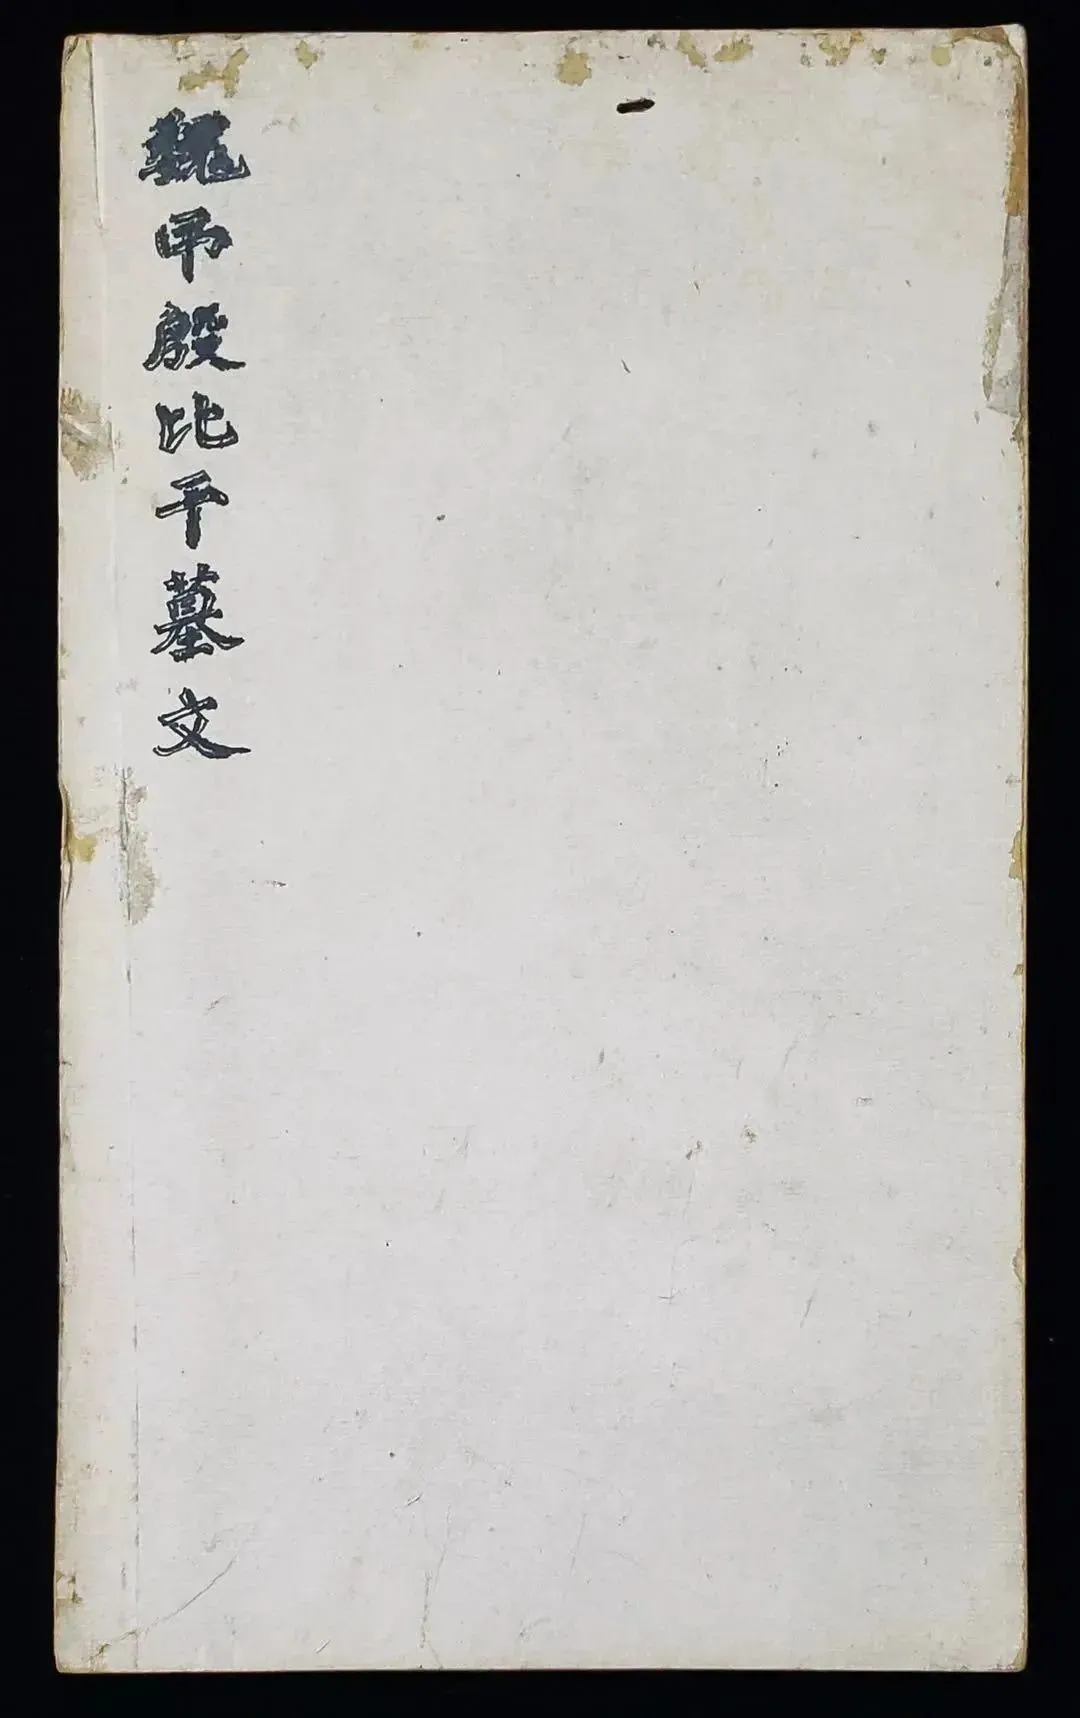 魏弔殷比干墓文
一